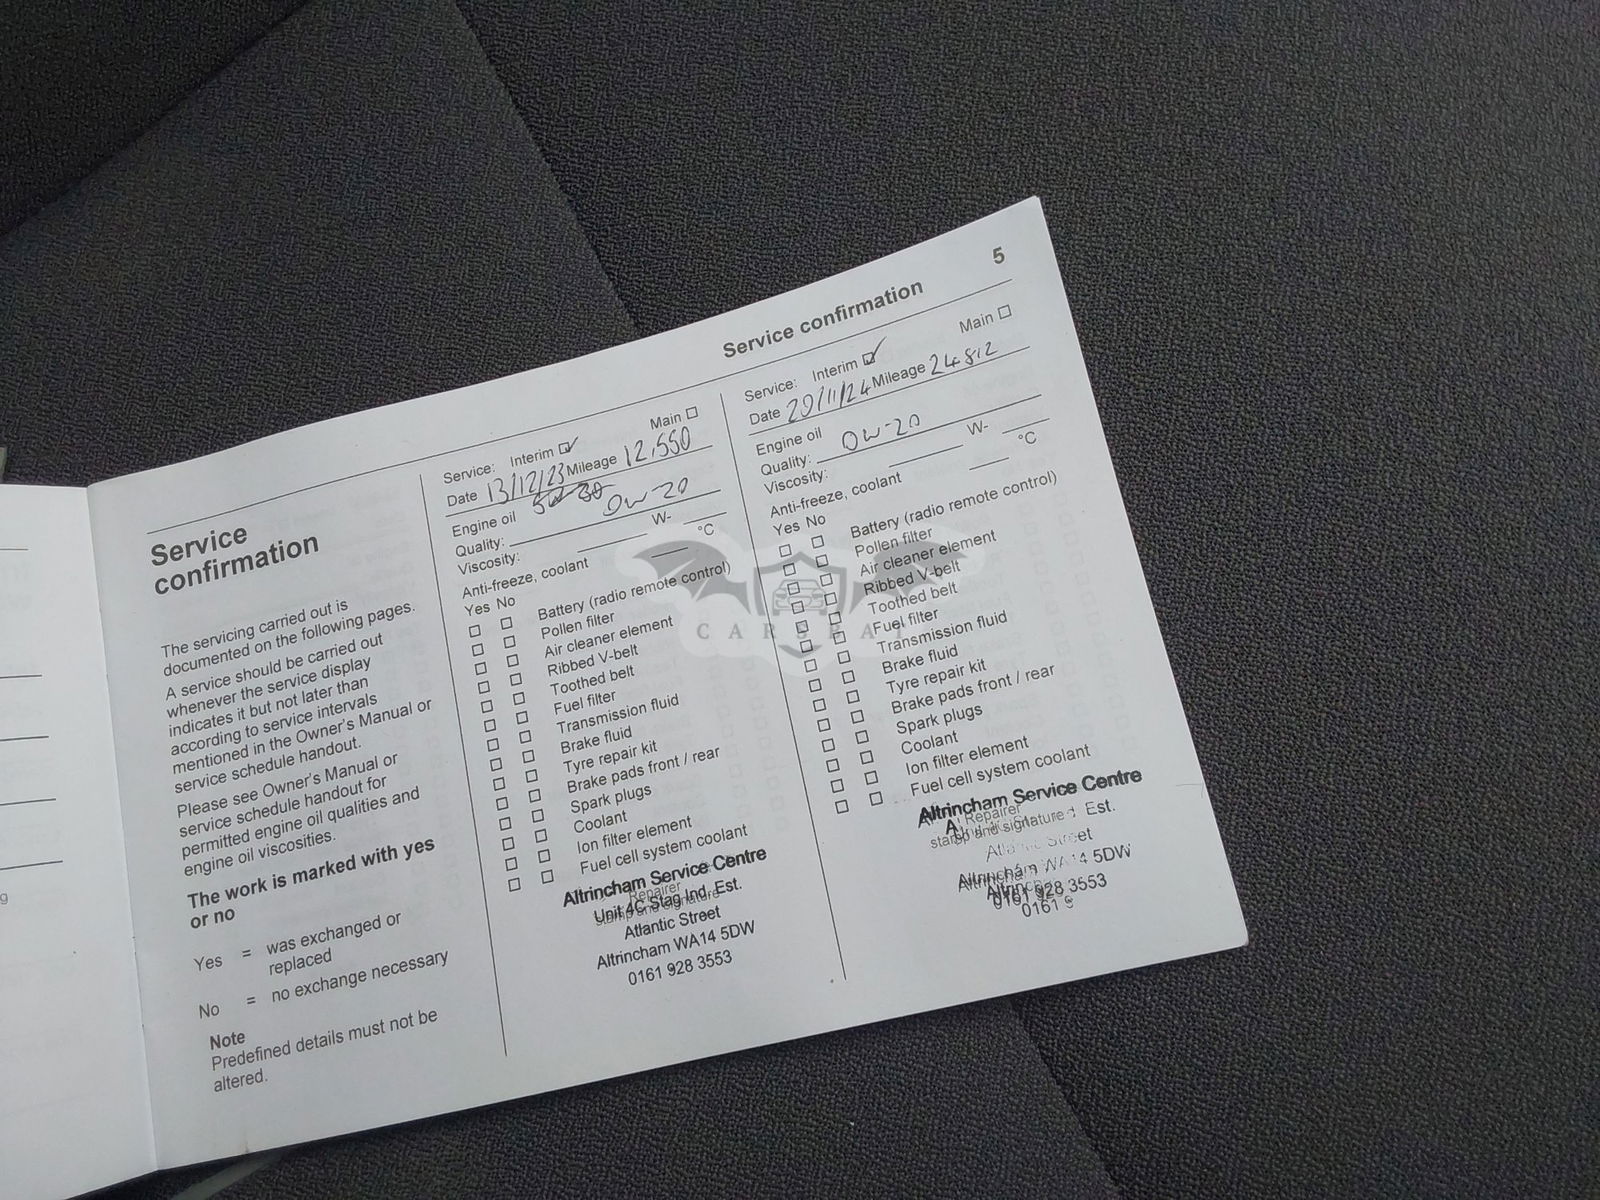 5
Service confirmation
Service
confirmation
The servicing carried out is
documented on the following pages.
A service should be carried out
whenever the service display
indicates it but not later than
according to service intervals
mentioned in the Owner's Manual or
service schedule handout.
Please see Owner's Manual or
service schedule handout for
permitted engine oil qualities and
engine oil viscosities.
The work is marked with yes
or no
Yes = was exchanged or
replaced
No = no exchange necessary
Note
Predefined details must not be
altered.
Service: Interim Main
Date 13/12/23 Mileage 12,550
Engine oil 5w-30 0W-20
Quality:
Viscosity: W-
Anti-freeze, coolant °C
Yes No
Battery (radio remote control)
Pollen filter
Air cleaner element
Ribbed V-belt
Toothed belt
Fuel filter
Transmission fluid
Brake fluid
Tyre repair kit
Brake pads front / rear
Spark plugs
Coolant
Ion filter element
Fuel cell system coolant
Altrincham Service Centre
Repairer
Unit 4C Stag Ind. Est.
stamp and signature
Atlantic Street
Altrincham WA14 5DW
0161 928 3553
Service: Interim Main
Date 20/11/24 Mileage 24812
Engine oil 0W-20
Quality:
Viscosity: W-
Anti-freeze, coolant °C
Yes No
Battery (radio remote control)
Pollen filter
Air cleaner element
Ribbed V-belt
Toothed belt
Fuel filter
Transmission fluid
Brake fluid
Tyre repair kit
Brake pads front / rear
Spark plugs
Coolant
Ion filter element
Fuel cell system coolant
Altrincham Service Centre
Repairer
stamp and signature Est.
Atlantic Street
Altrincham WA14 5DW
0161 928 3553
0161 9
CARSPAT